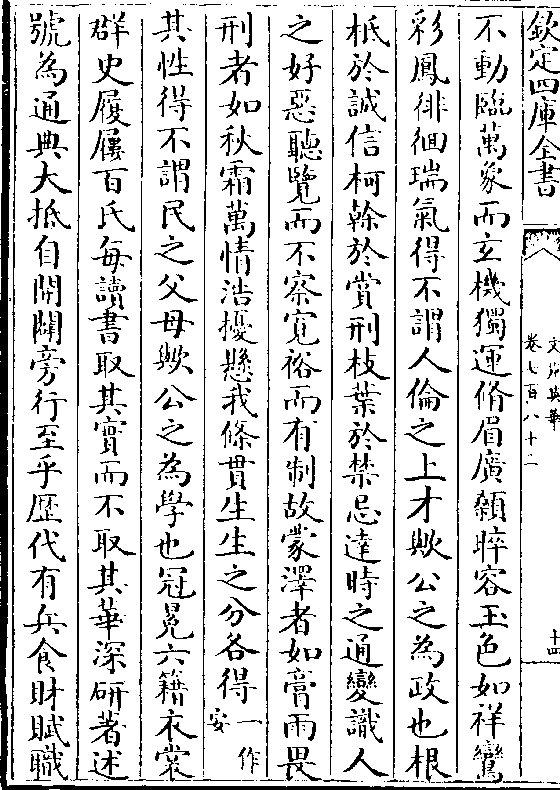 欽定四庫全書
文苑英華
卷七百八十二
十四
不動臨萬象而玄機獨運脩眉廣顙睟容玉色如祥鸞
彩鳳徘徊瑞氣得不謂人倫之上才歟公之為政也根
柢於誠信柯榦於賞刑枝葉於禁忌達時之通變識人
之好惡聽覽而不察寛裕而有制故蒙澤者如膏雨畏
刑者如秋霜萬情浩擾懸我條貫生生之分各得一作安
其性得不謂民之父母歟公之為學也冠冕六籍衣裳
群史履屨百氏每讀書取其實而不取其華深研著述
號為通典大抵自開闢旁行至乎歴代有兵食財賦職